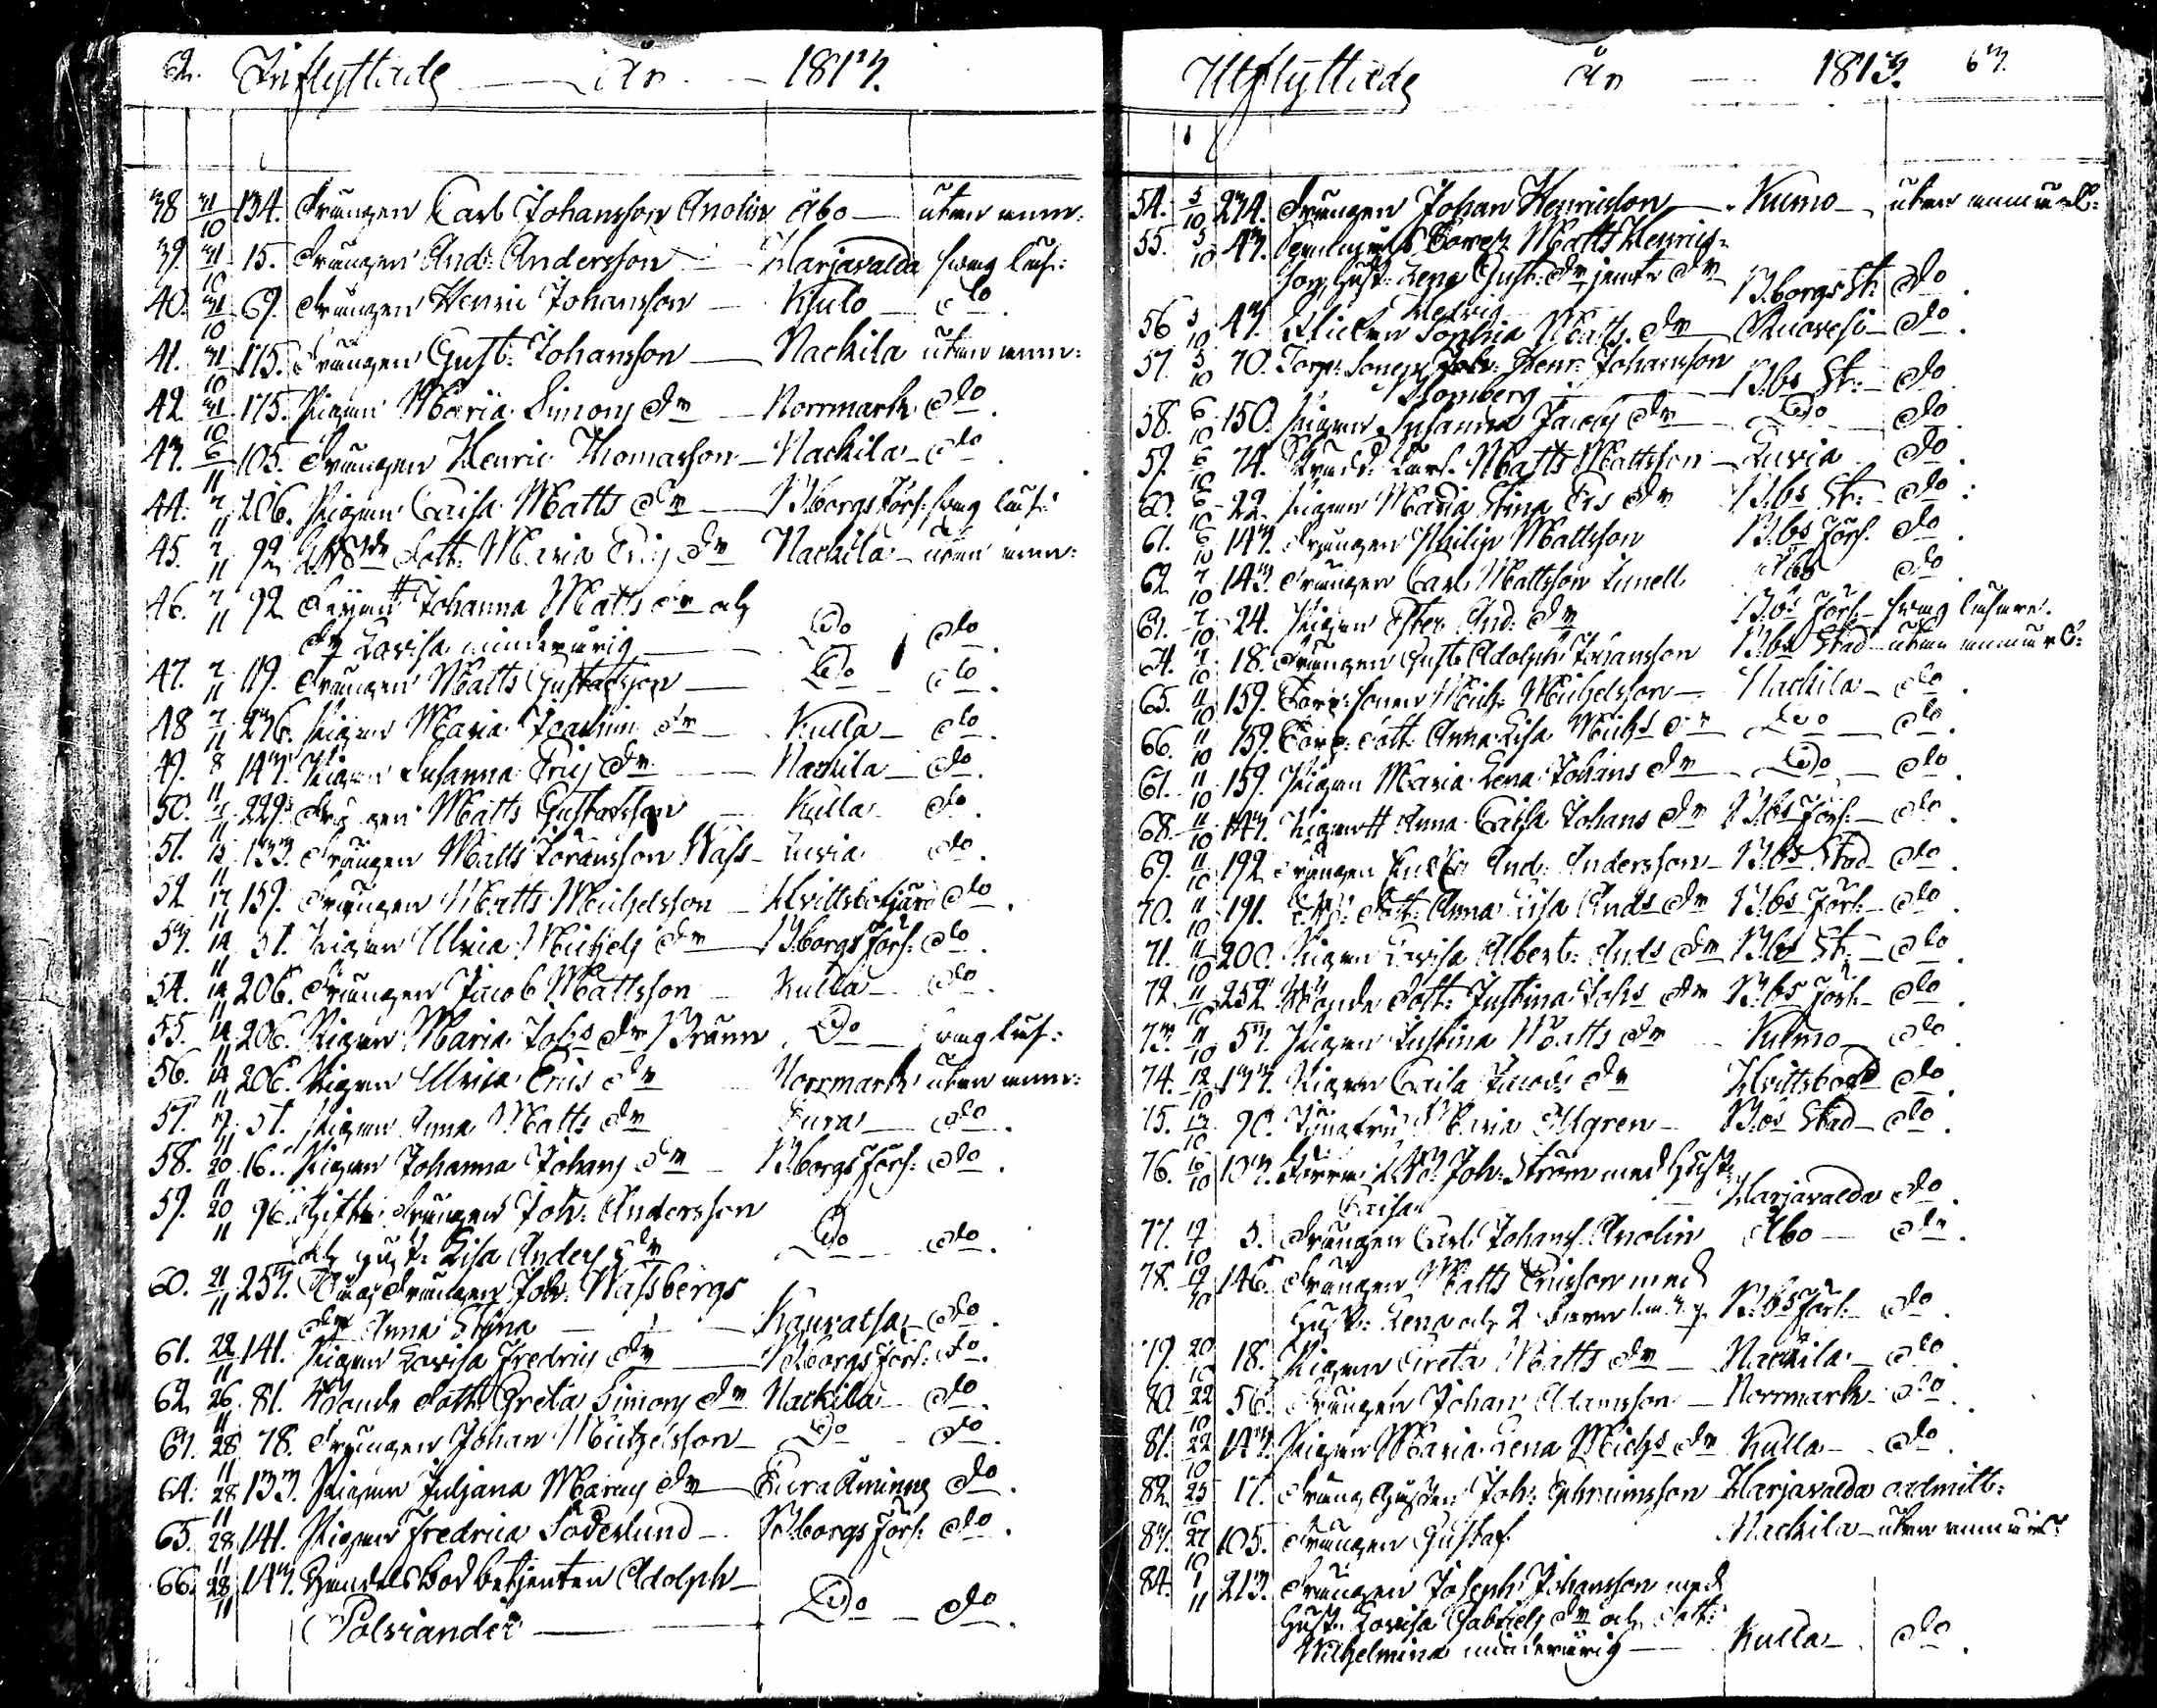 62. Inflyttade — år — 1813.
38 31/10 134. Drängen Carl Johansson Anolin Åbo — utan anm:
39. 31/10 15. Drängen And: Andersson — Harjavalda swag läsn:
40. 31/10 69. Drängen Henric Johansson — Kjulo — do.
41. 31/10 175. Drängen Gust: Johansson — Nackila utan anm:
42 31/10 175. Pigan Maria Simons dr — Norrmark do.
43. 6/11 105. Drängen Henric Thomasson — Nackila — do.
44. 7/11 206. Pigan Caisa Matts dr — B:borgs förs: swag läsn:
45. 7/11 92 dott. Maria Erics dr Nackila — utan anm:
46. 7/11 92 Johanna Matts dr och
dr Lovisa minderårig — Do do.
47. 7/11 119. Drängen Matts Gustafsson — Do — do.
48 7/11 236. Pigan Maria Joachim dr — Kulla — do.
49. 8/11 143. Pigan Susanna Erics dr — Nackila — do.
50. 229. Drängen Matts Gustafsson — Kulla do.
51. 15/11 133. Drängen Matts Göransson Wass — Luvia do.
52 17/11 159. Drängen Matts Michelsson — Hvittisbofjärd do.
53. 14/11 51. Pigan Ulrica Michels dr — B:borgs förs: do.
54. 14/11 206. Drängen Jacob Mattsson — Kulla — do.
55. 14/11 206. Pigan Maria Johs dr Brunn Do — swag läs:
56. 14/11 206. Pigan Ulrica Erics dr Norrmark utan anm:
57. 17/11 51. Pigan Anna Matts dr Eura — do.
58. 20/11 16. Pigan Johanna Johans dr — B:borgs förs: do.
59. 20/11 96. Gifte Drängen Joh: Andersson
och hust: Lisa Anders dr Do — do.
60. 21/11 253. Drängen Joh: Wassbergs
dr Anna Stina — Kauvatsa — do.
61. 22/11 141. Pigan Lovisa Fredrics dr — B:borgs förs: do.
62. 26/11 81. Bonde dott: Greta Simons dr Nackila — do.
63. 28/11 78. Drängen Johan Michelsson — Do — do.
64. 28/11 133. Pigan Juljana Marcus dr — Eura Åminne do.
65. 28/11 141. Pigan Fredrica Söderlund — B:borgs förs: do.
66. 28/11 143. Handels Bod betjenten Adolph
Polviander — Do — do.
Utflyttade År — 1813. 63.
54. 5/10 234. Drängen Johan Henricsson — Kumo — utan anmärk:
55. 5/10 43. Matts Henrics-
son, hust: Lena Gust: dr jemte dr
Hedvig B:borgs St: do.
56 5/10 43. Flickan Sophia Matts dr — Ruovesi — do.
57. 5/10 70. Torp: Sonen Joh: Henr: Johansson
Blomberg — B:bs St: — do.
58. 6/10 150. Pigan Susanna Jacobs dr Do — do.
59. 6/10 74. Matts Mattsson — Luvia do.
60. 6/10 22. Pigan Maria Stina Ers dr B:bs St: do.
61. 6/10 143. Drängen Philip Mattsson B:bs förs. do.
62 7/10 143. Drängen Carl Mattsson Lunell Åbo do.
63. 7/10 24. Pigan Ester And: dr B:bs förs — swag läsare.
64. 7/10 18. Drängen Gust: Adolph Johansson B:bs Stad utan anmärk:
65. 11/10 159. Torp: sonen Mich: Michelsson — Nackila — do.
66. 11/10 159. Torp: dott: Anna Lisa Michs dr — Do — do.
67. 11/10 159. Pigan Maria Lena Johans dr — Do — do.
68. 11/10 143. Pigan Anna Caisa Johans dr B:bs förs: — do.
69. 11/10 192 Drängen And: Andersson — B:bs Stad do.
70. 11/10 191. dott: Anna Lisa Ands dr B:bs förs: — do.
71. 11/10 200. Pigan Lovisa Albert: Ands dr B:bs St: — do.
72 11/10 252. Bonde dott: Justina Johs dr B:bs förs: — do.
73. 11/10 53. Pigan Justina Matts dr — Kulmo — do.
74. 12/10 133. Pigan Caisa Jacobs dr Hvittisbofd do.
75. 13/10 90. Jungfru Maria Ahlgren — B:bs Stad — do.
76. 16/10 103. Joh: Ström med hust:
Caisa Harjavalda do.
77. 17/10 3. Drängen Carl Johans: Anolin Åbo — do.
78. 19/10 146. Drängen Matts Ericsson med
hust: Lena och 2 barn B:bs förs: — do.
79. 20/10 18. Pigan Greta Matts dr — Nackila — do.
80. 22/10 56. Drängen Johan Adamsson — Norrmark — do.
81. 22/10 143. Pigan Maria Lena Michs dr Kulla — do.
82. 25/10 17. Dräng Gossen Joh: Ephraimsson Harjavalda oadmitt:
83. 27/10 105. Drängen Gustaf Nackila — utan anmärk:
84. 1/11 213. Drängen Joseph Johansson med
Hust: Lovisa Gabriels dr och dott:
Wilhelmina minderårig — Kulla — do.